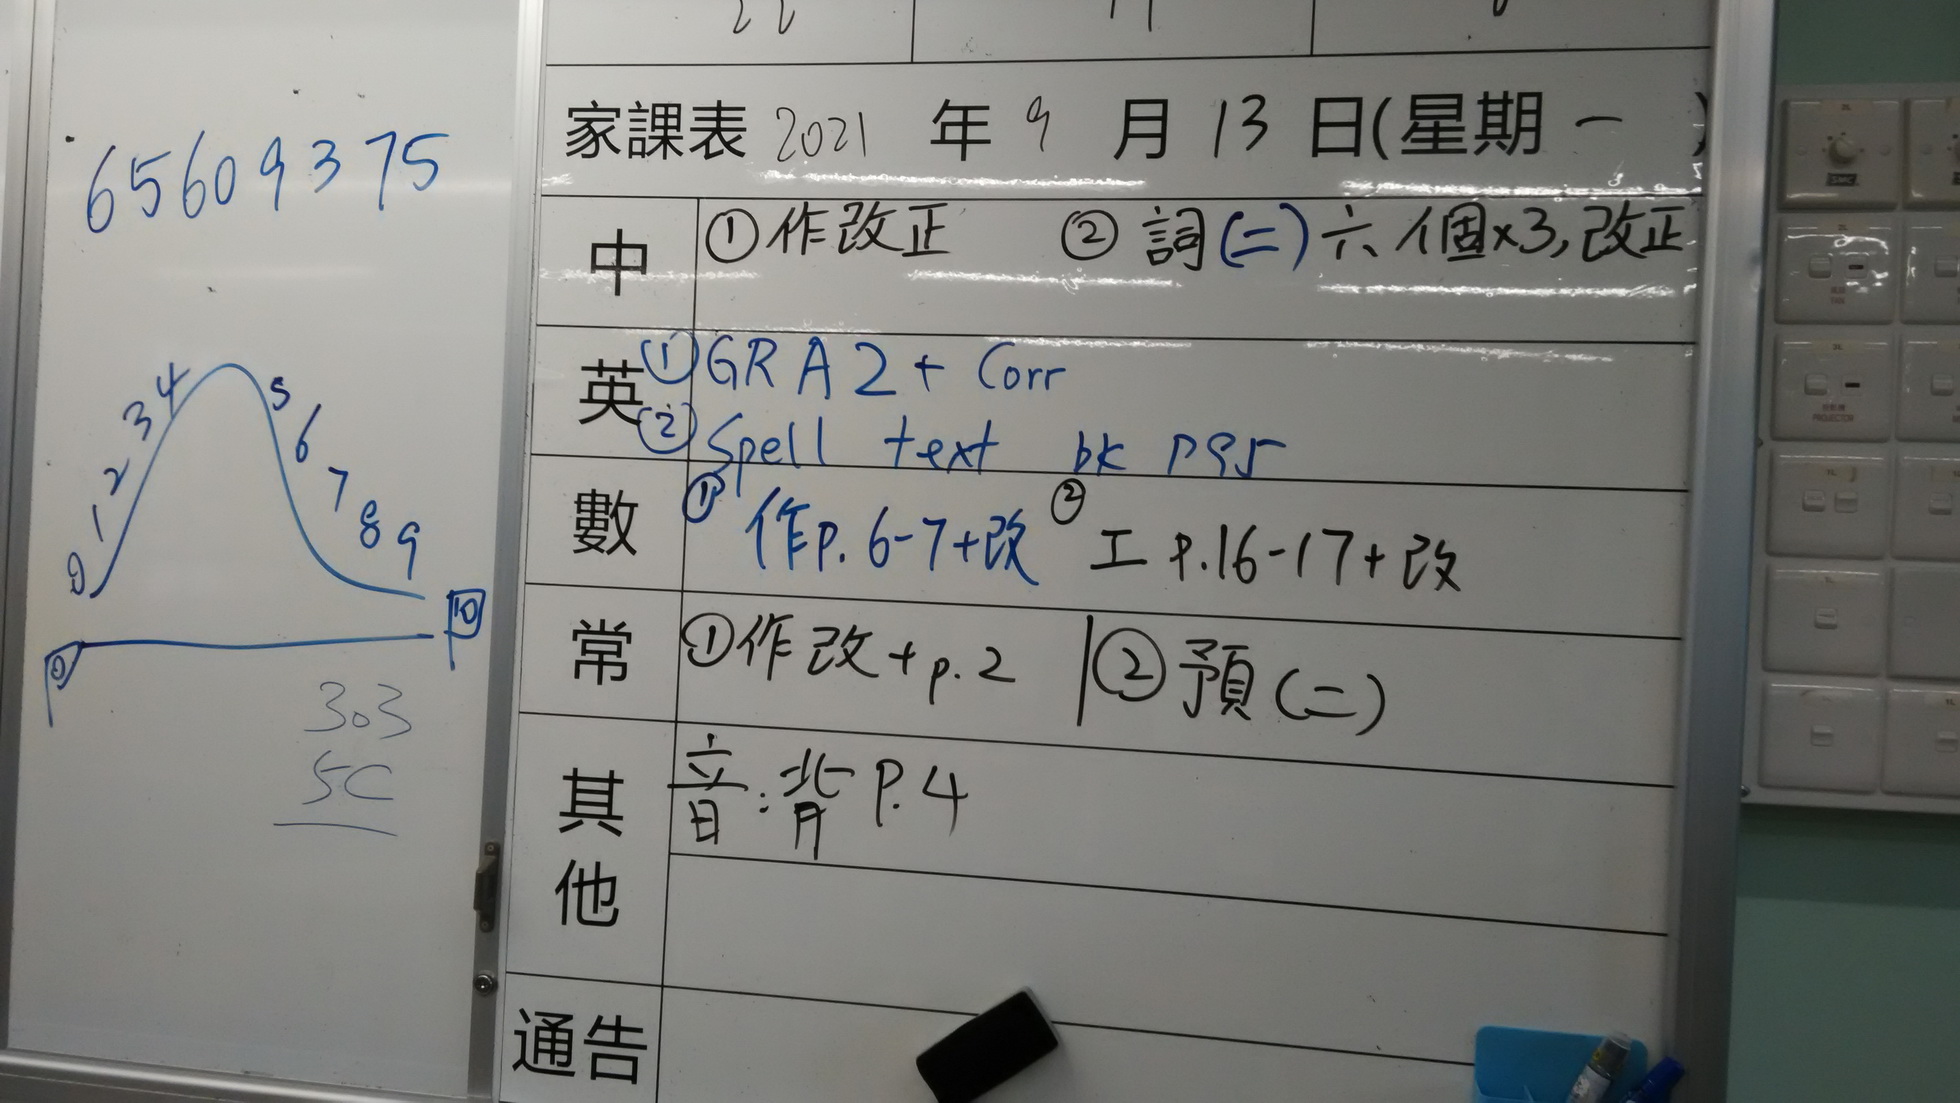 65609375
0 1 2 3 4 5 6 7 8 9
0 10
303
5C
家課表 2021 年 9 月 13 日(星期 一 )
中 ①作改正 ② 詞(二)六個x3,改正
英 ①GR A2 + Corr
②Spell text bk p95
數 ① 作p.6-7+改 ② 工 p.16-17+改
常 ①作改+p.2 ②預(二)
其他 音:背 P.4
通告
PROJECTOR